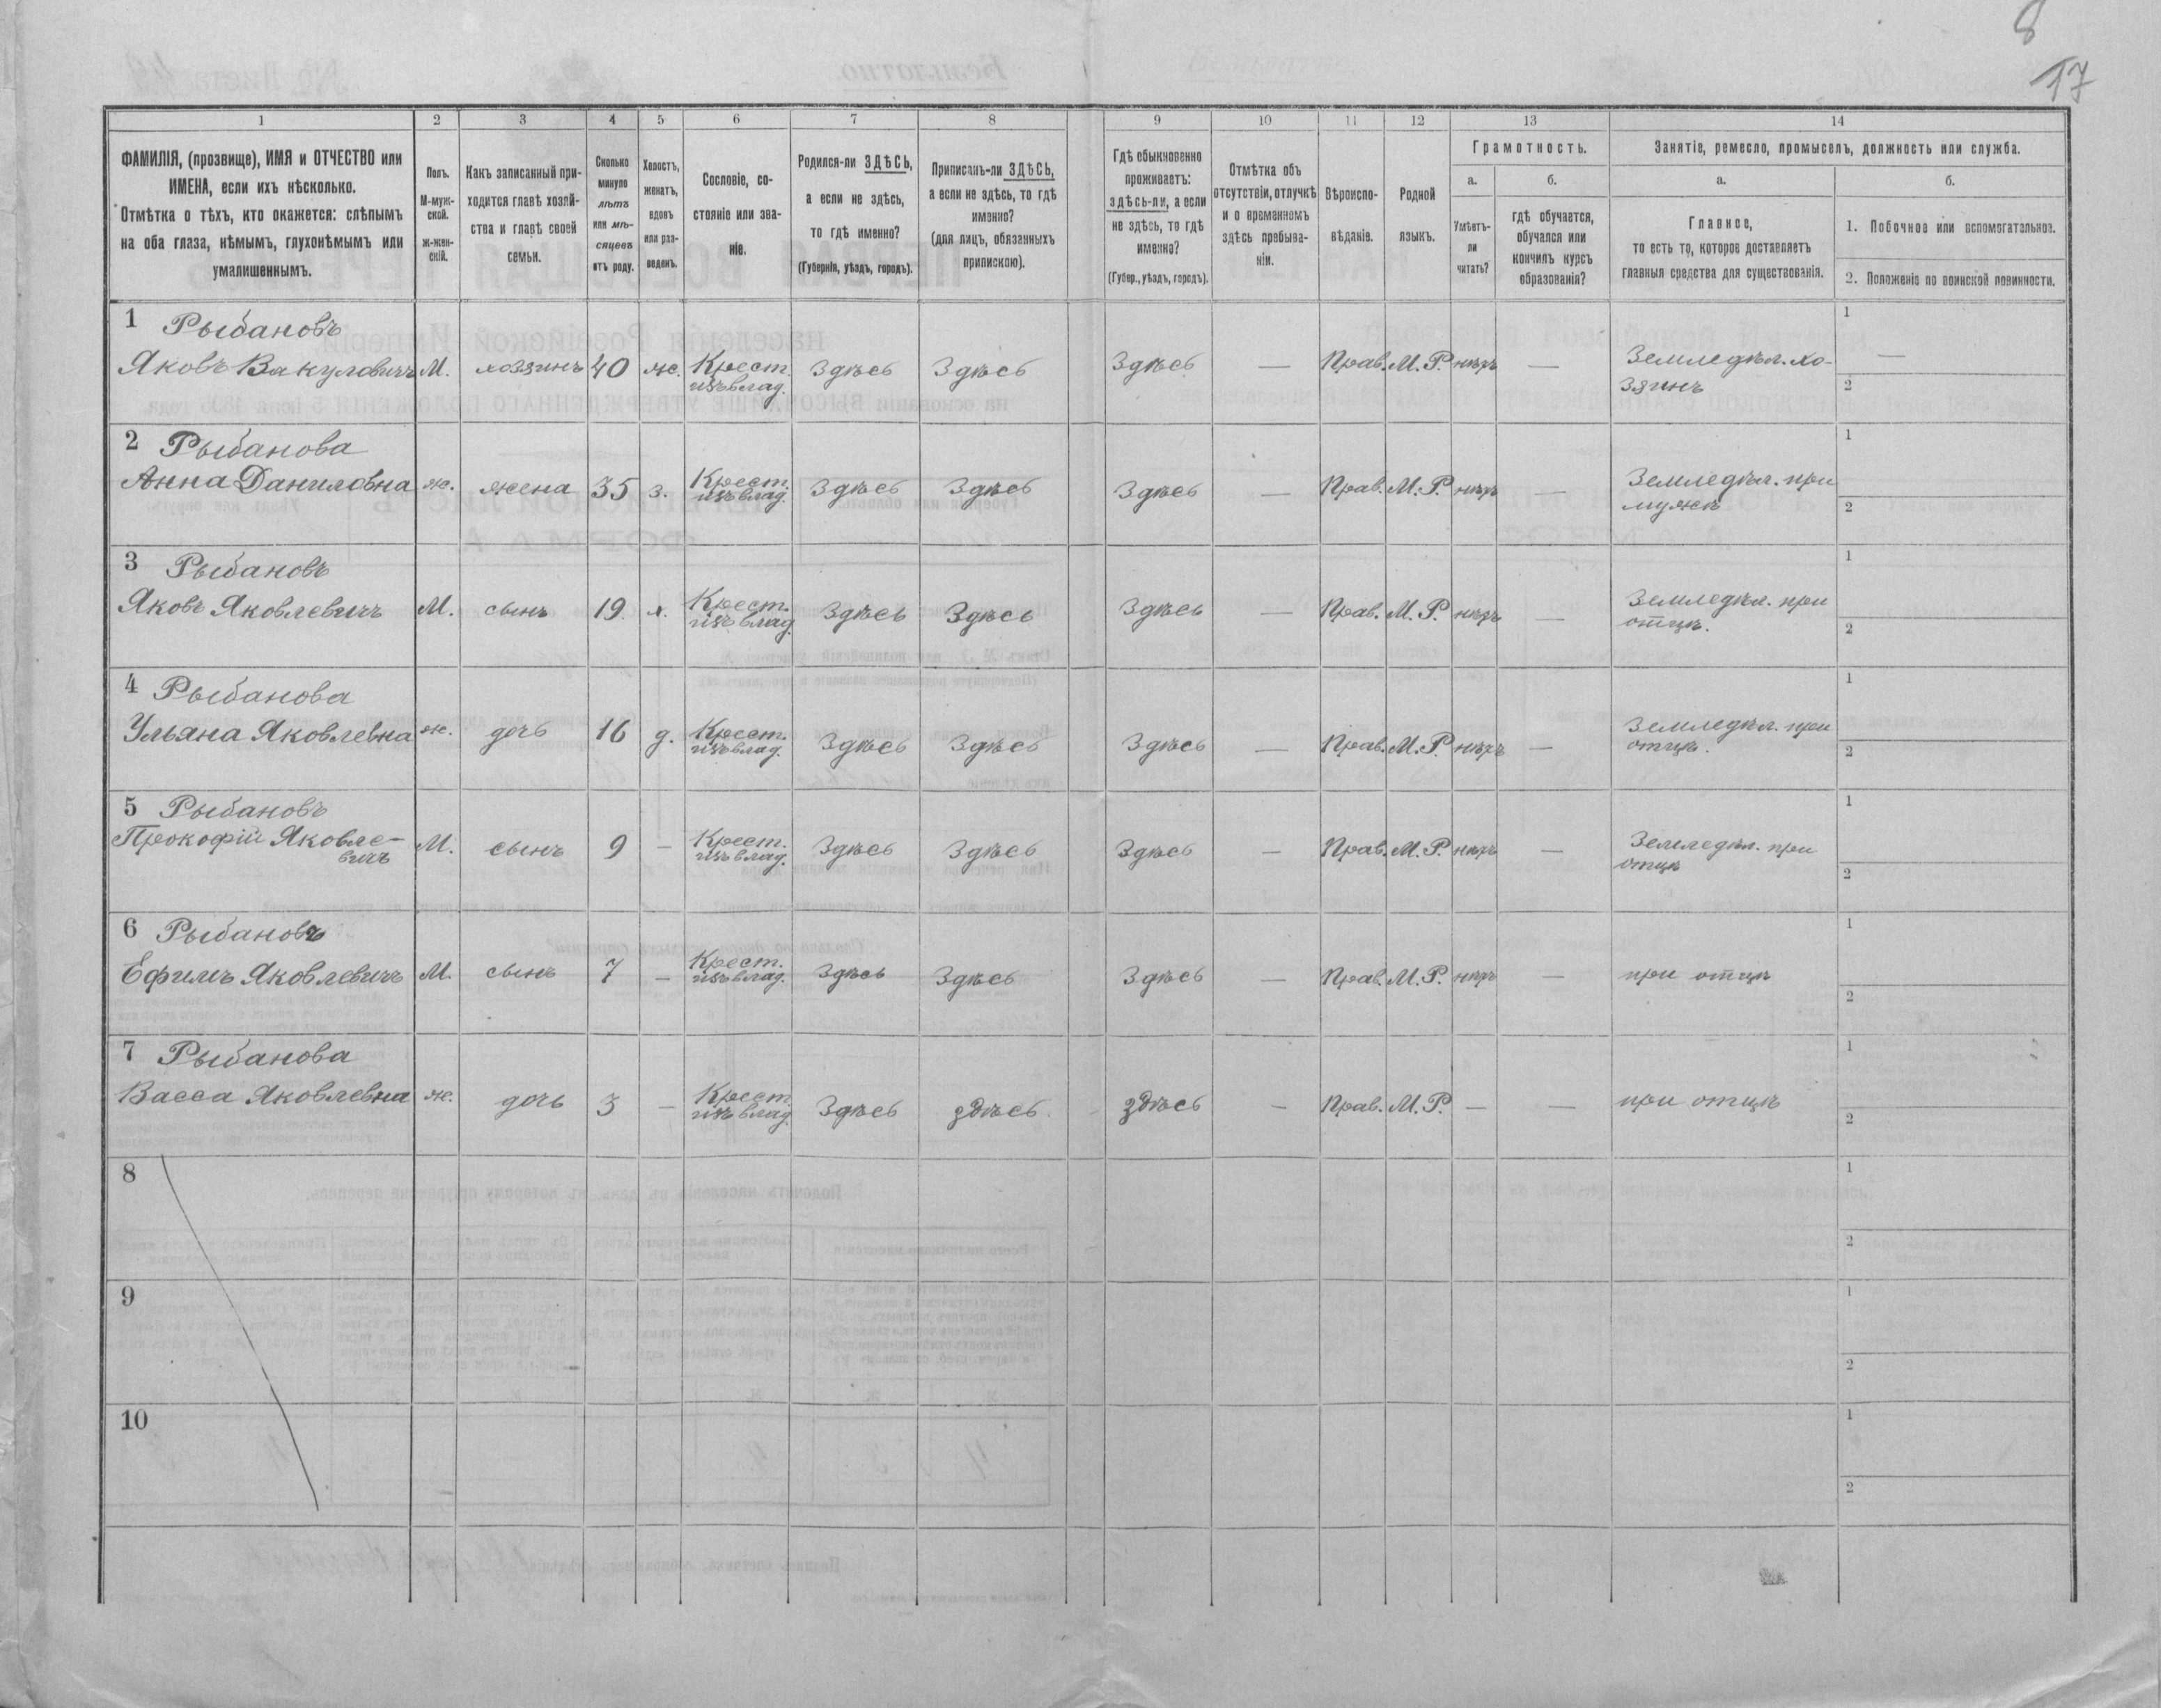 8
17
1 2 3 4 5 6 7 8 9 10 11 12 13 14
ФАМИЛІЯ, (прозвище), ИМЯ и ОТЧЕСТВО или
ИМЕНА, если ихъ нѣсколько.
Отмѣтка о тѣхъ, кто окажется: слѣпымъ
на оба глаза, нѣмымъ, глухонѣмымъ или
умалишеннымъ.
Полъ.
М-муж-
ской.
Ж-жен-
скій.
Какъ записанный при-
ходится главѣ хозяй-
ства и главѣ своей
семьи.
Сколько
минуло
лѣтъ
или мѣ-
сяцевъ
отъ роду.
Холостъ,
женатъ,
вдовъ
или раз-
веденъ.
Сословіе, со-
стояніе или зва-
ніе.
Родился-ли ЗДѢСЬ,
а если не здѣсь,
то гдѣ именно?
(Губернія, уѣздъ, городъ).
Приписанъ-ли ЗДѢСЬ,
а если не здѣсь, то гдѣ
именно?
(для лицъ, обязанныхъ
припискою).
Гдѣ обыкновенно
проживаетъ:
здѣсь-ли, а если
не здѣсь, то гдѣ
именно?
(Губер., уѣздъ, городъ).
Отмѣтка объ
отсутствіи, отлучкѣ
и о временномъ
здѣсь пребыва-
ніи.
Вѣроиспо-
вѣданіе.
Родной
языкъ.
Грамотность.
а.
Умѣетъ-
ли
читать?
б.
гдѣ обучается,
обучался или
кончилъ курсъ
образованія?
Занятіе, ремесло, промыселъ, должность или служба.
а.
Главное,
то есть то, которое доставляетъ
главныя средства для существованія.
б.
1. Побочное или вспомогательное.
2. Положеніе по воинской повинности.
1 Рыбановъ
Яковъ Вакуловичъ М. хозяинъ 40 ж. Крест. изъ влад. Здѣсь Здѣсь Здѣсь — Прав. М. Р. нѣтъ — Земледѣл. хо-
зяинъ
1 —
2
2 Рыбанова
Анна Даниловна ж. жена 35 з. Крест. изъ влад. Здѣсь Здѣсь Здѣсь — Прав. М. Р. нѣтъ — Земледѣл. при
мужѣ
1
2
3 Рыбановъ
Яковъ Яковлевичъ М. сынъ 19 х. Крест. изъ влад. Здѣсь Здѣсь Здѣсь — Прав. М. Р. нѣтъ — Земледѣл. при
отцѣ.
1
2
4 Рыбанова
Ульяна Яковлевна ж. дочь 16 д. Крест. изъ влад. Здѣсь Здѣсь Здѣсь — Прав. М. Р. нѣтъ — Земледѣл. при
отцѣ.
1
2
5 Рыбановъ
Прокофій Яковле-
вичъ М. сынъ 9 — Крест. изъ влад. Здѣсь Здѣсь Здѣсь — Прав. М. Р. нѣтъ — Земледѣл. при
отцѣ
1
2
6 Рыбановъ
Ефимъ Яковлевичъ М. сынъ 7 — Крест. изъ влад. Здѣсь Здѣсь Здѣсь — Прав. М. Р. нѣтъ — при отцѣ
1
2
7 Рыбанова
Васса Яковлевна ж. дочь 3 — Крест. изъ влад. Здѣсь здѣсь здѣсь — Прав. М. Р. — — при отцѣ
1
2
8
1
2
9
1
2
10
1
2